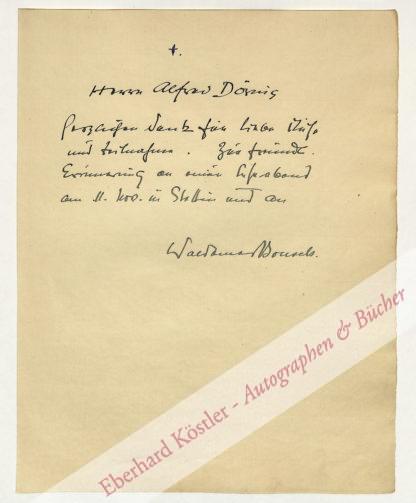 +.
Herrn Alfred Dörnig
herzlichen Dank für liebe Mühe
und Teilnahme. Zur freundl.
Erinnerung an einen Leseabend
am 11. Nov. in Stettin und an
Waldemar Bonsels.
Eberhard Köstler - Autographen & Bücher